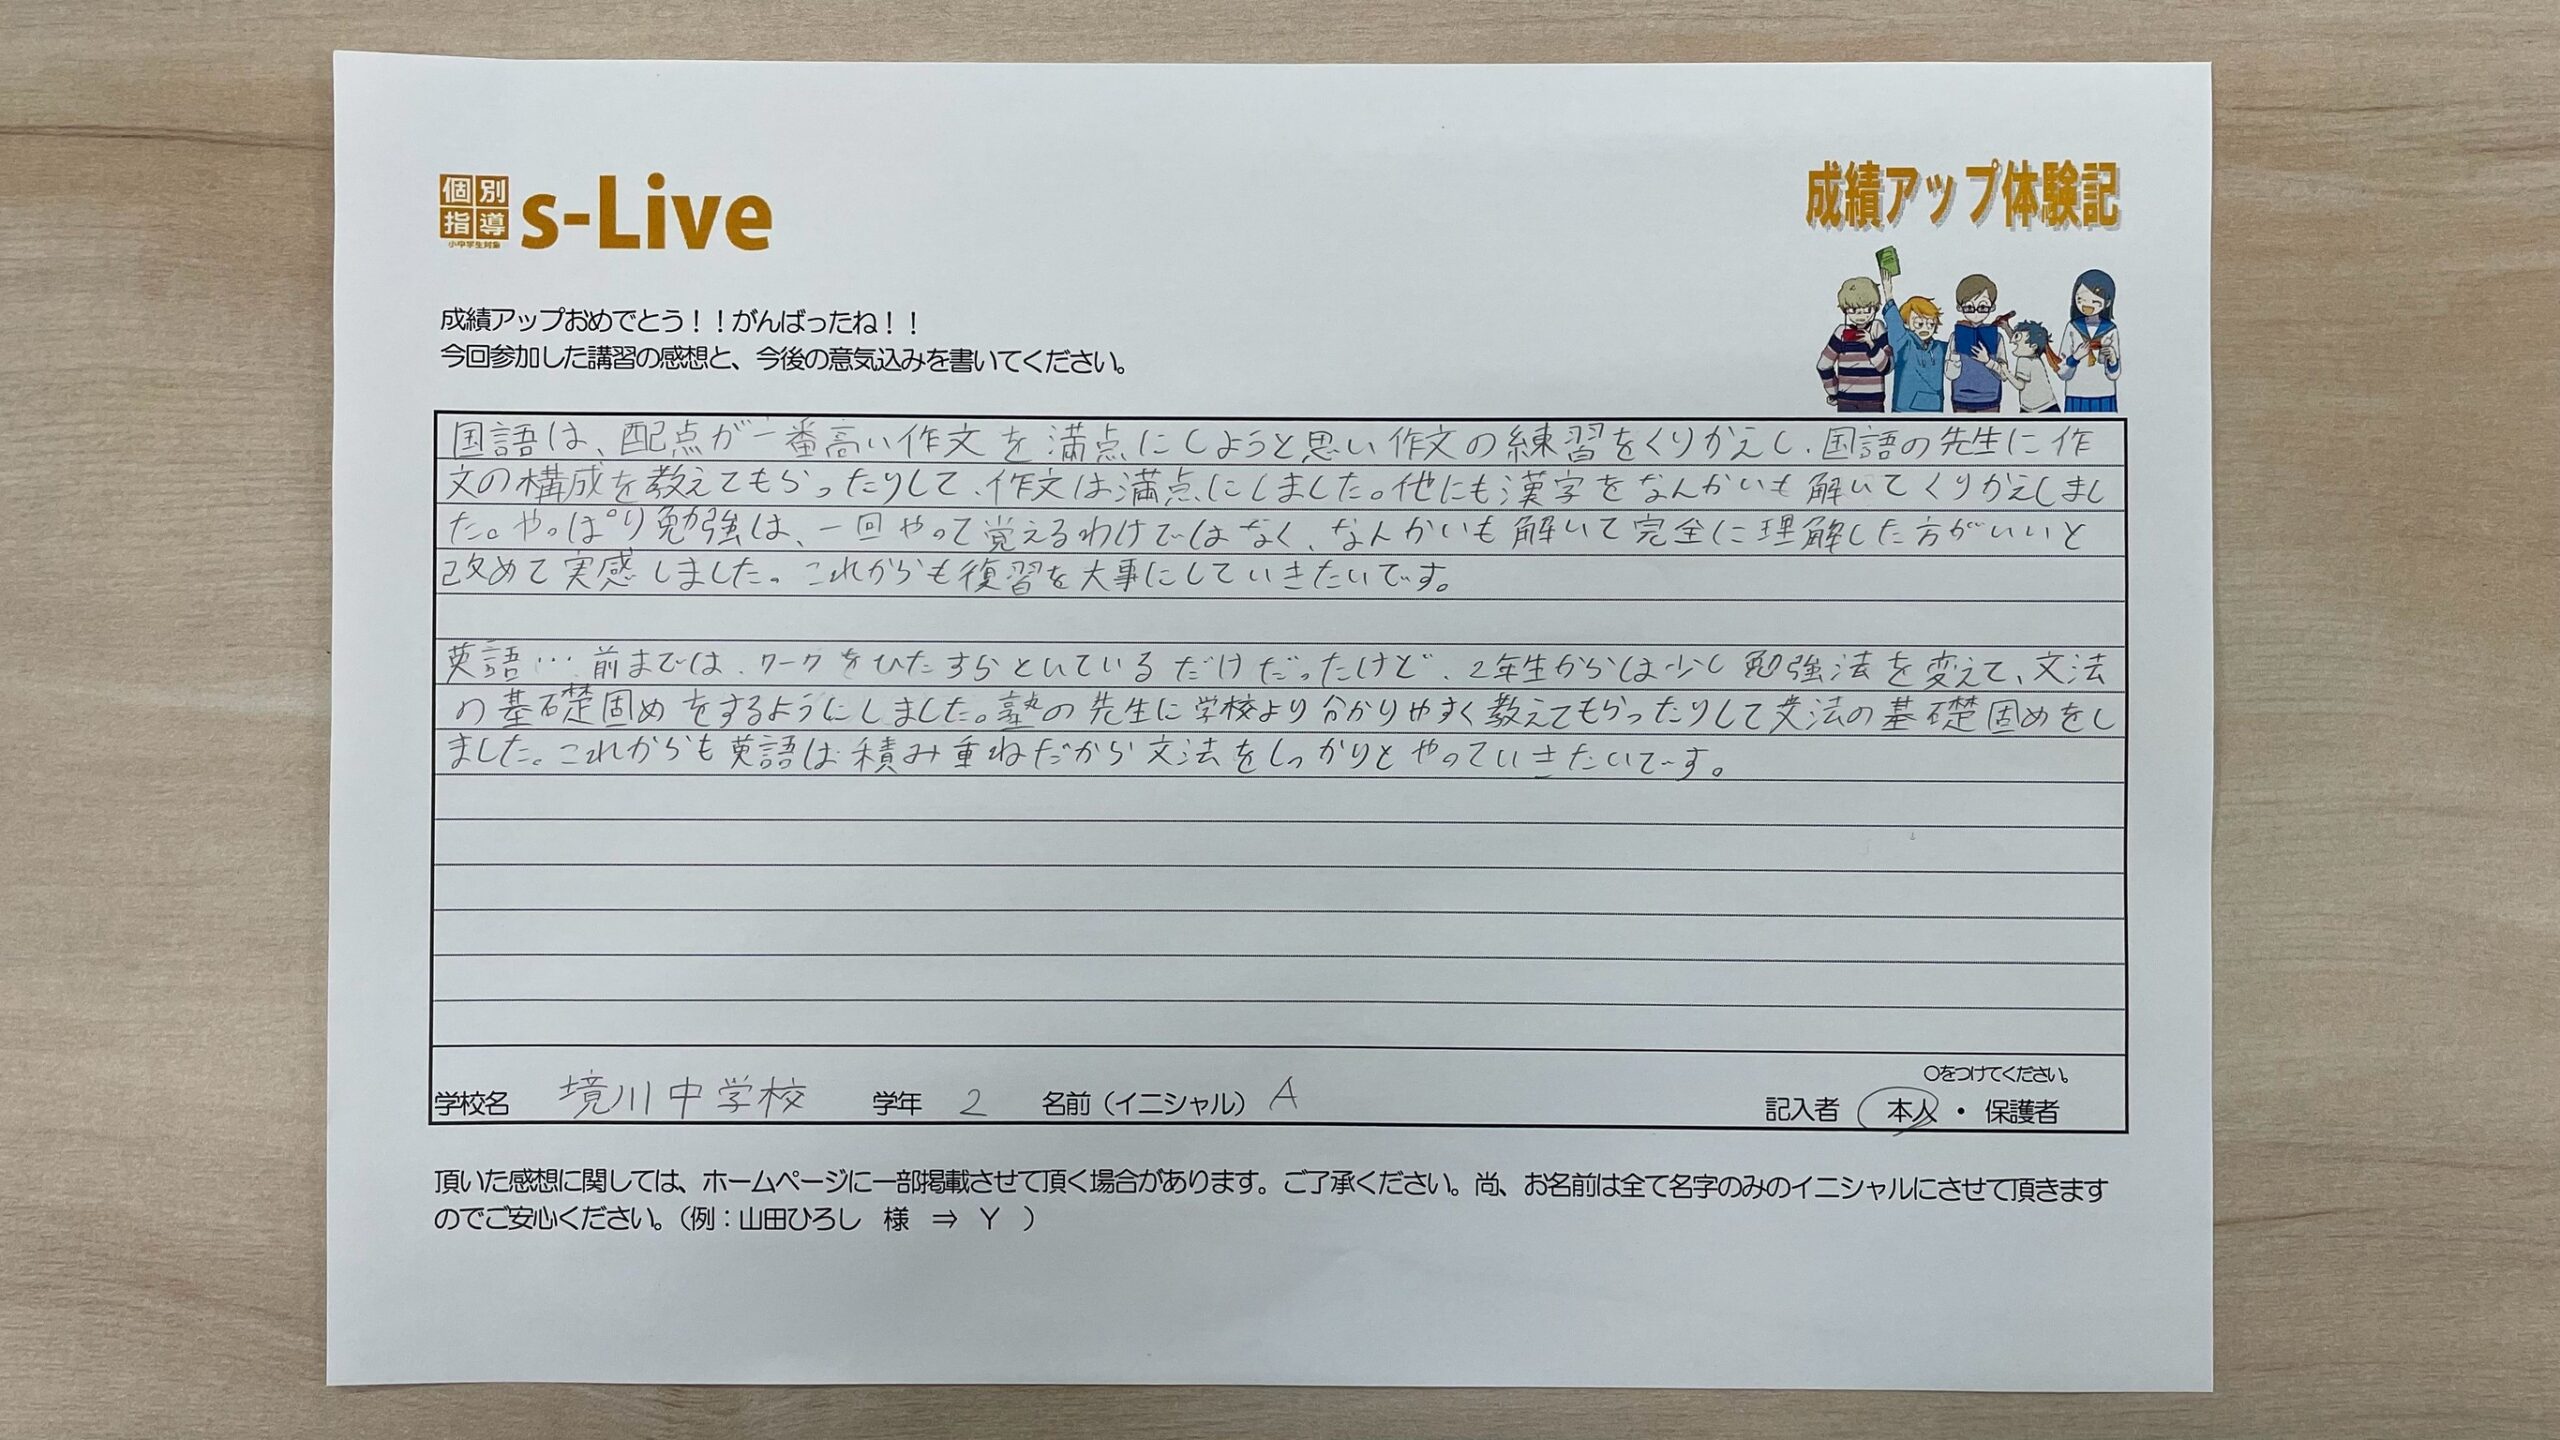 個別指導
小中学生対象
s-Live
成績アップ体験記
成績アップおめでとう！！がんばったね！！
今回参加した講習の感想と、今後の意気込みを書いてください。
国語は、配点が一番高い作文を満点にしようと思い作文の練習をくりかえし、国語の先生に作
文の構成を教えてもらったりして、作文は満点にしました。他にも漢字をなんかいも解いてくりかえしまし
た。やっぱり勉強は、一回やって覚えるわけではなく、なんかいも解いて完全に理解した方がいいと
改めて実感しました。これからも復習を大事にしていきたいです。
英語…前までは、ワークをひたすらといているだけだったけど、2年生からは少し勉強法を変えて、文法
の基礎固めをするようにしました。塾の先生に学校より分かりやすく教えてもらったりして文法の基礎固めをし
ました。これからも英語は積み重ねだから文法をしっかりとやっていきたいです。
○をつけてください。
学校名 境川中学校 学年 2 名前（イニシャル） A 記入者 本人・保護者
頂いた感想に関しては、ホームページに一部掲載させて頂く場合があります。ご了承ください。尚、お名前は全て名字のみのイニシャルにさせて頂きます
のでご安心ください。（例：山田ひろし 様 ⇒ Y ）